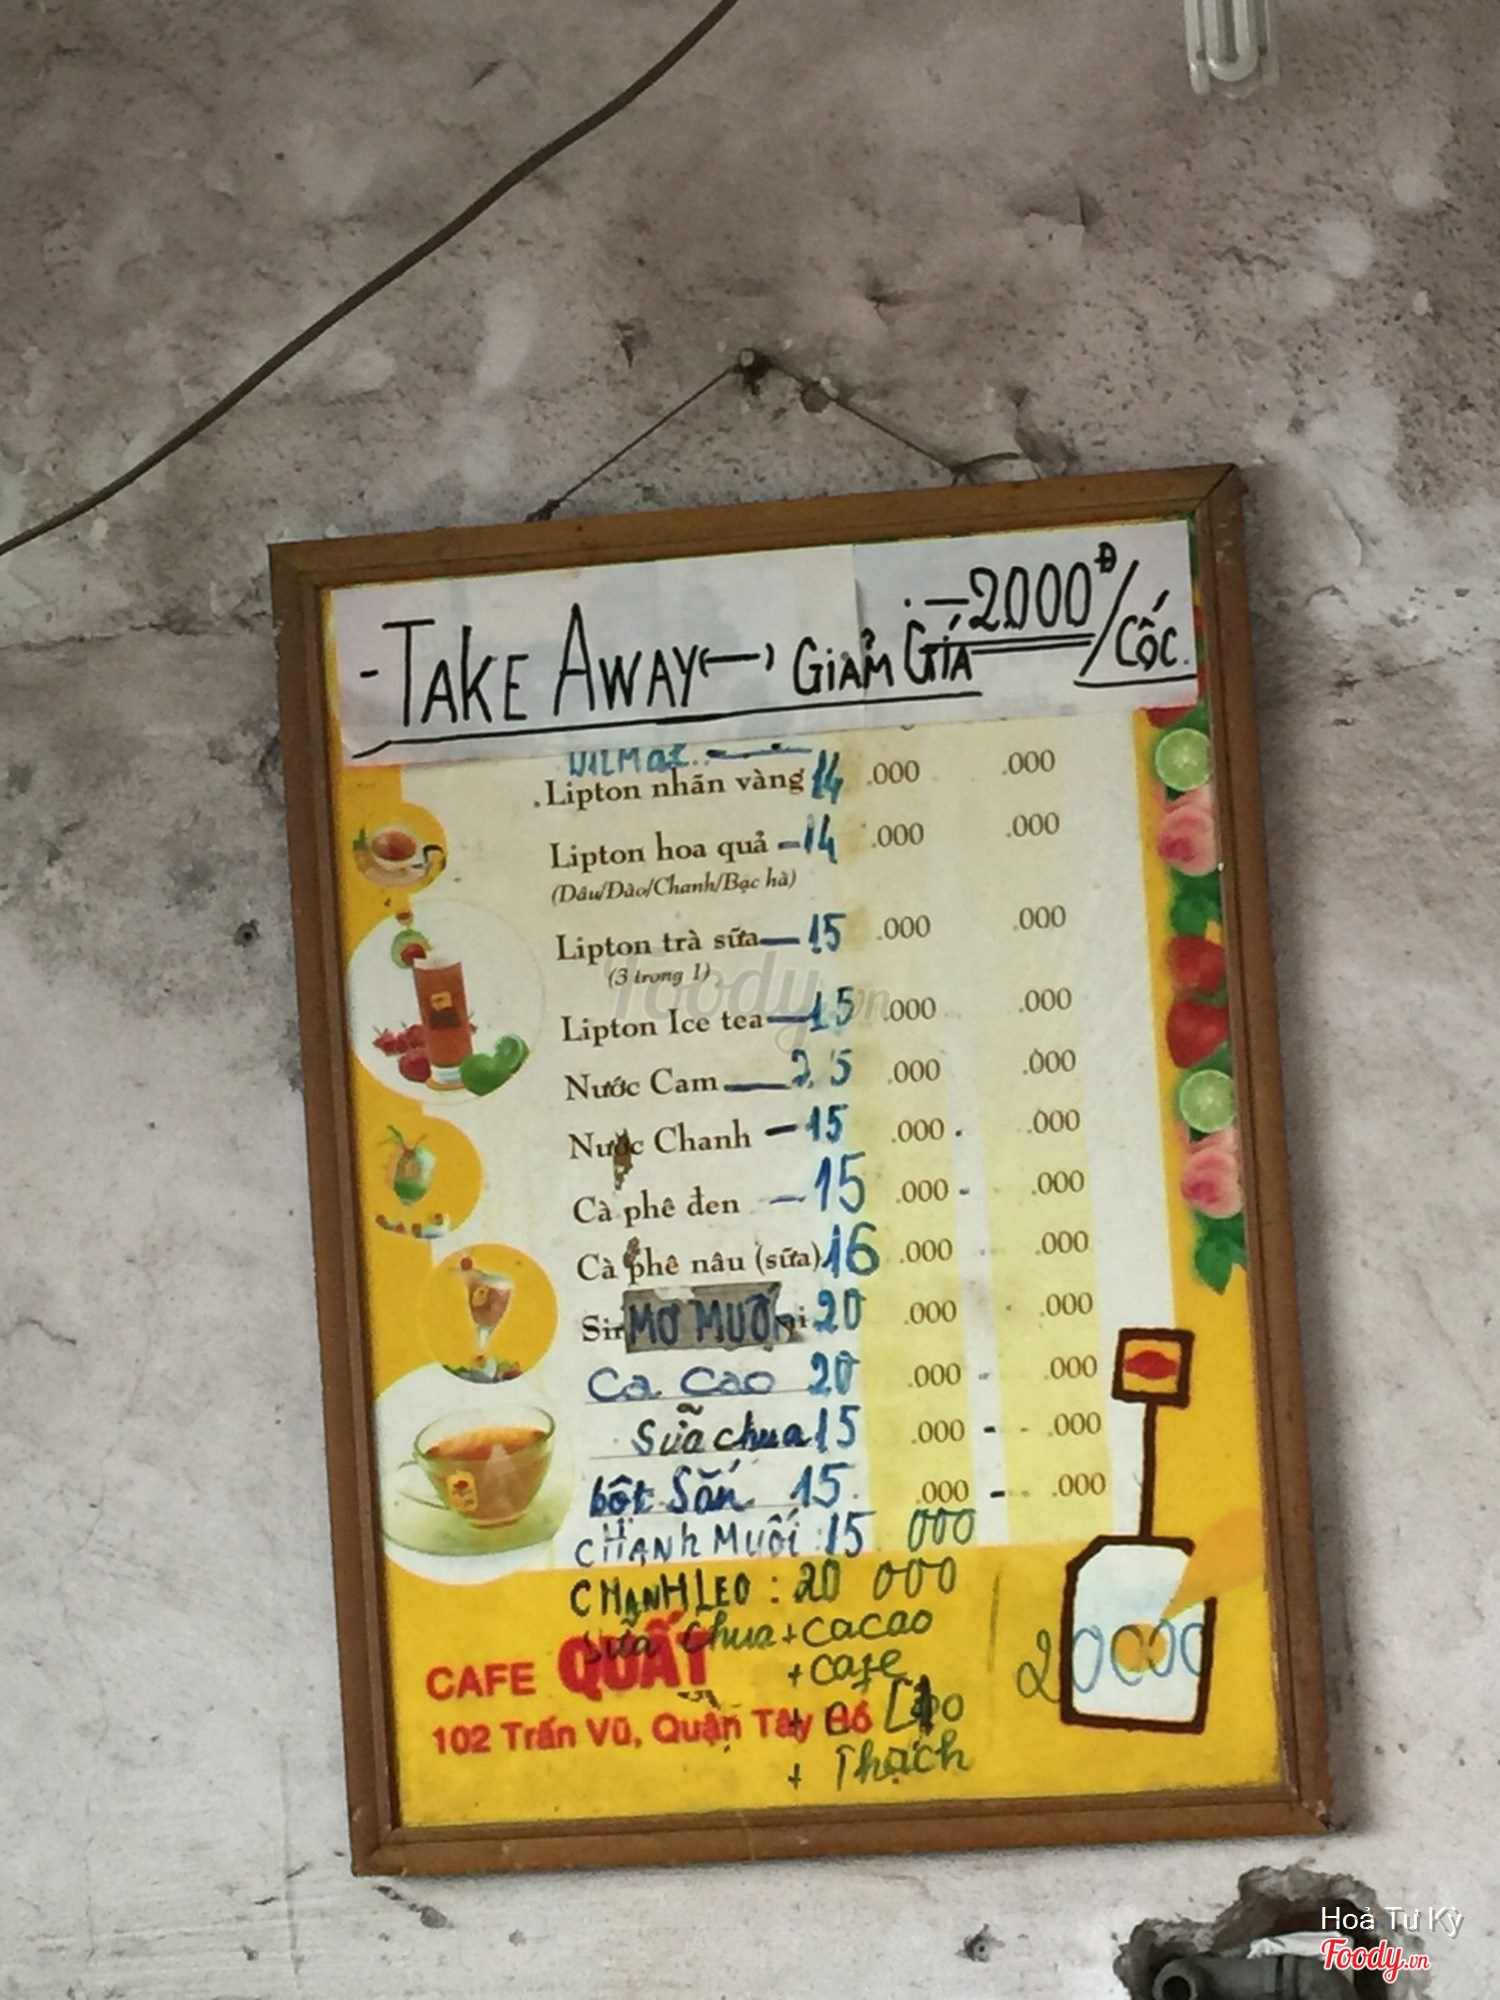 - TAKE AWAY GIẢM GIÁ - 2000Đ/CỐC.
Lipton nhãn vàng 14 .000 .000
Lipton hoa quả - 14 .000 .000
(Dâu/Đào/Chanh/Bạc hà)
Lipton trà sữa - 15 .000 .000
(3 trong 1)
Lipton Ice tea - 15 .000 .000
Nước Cam - 25 .000 .000
Nước Chanh - 15 .000 .000
Cà phê đen - 15 .000 .000
Cà phê nâu (sữa) 16 .000 .000
MƠ MUỐI 20 .000 .000
Ca Cao 20 .000 .000
Sữa chua 15 .000 .000
bột Sắn 15 .000 .000
CHANH MUỐI : 15 000
CHANH LEO : 20 000
Sữa Chua + cacao
+ cafe
20000
+ Thạch
CAFE QUẤT
102 Trấn Vũ, Quận Tây Hồ
Foody.vn
Hoả Tư Kỳ
Foody.vn